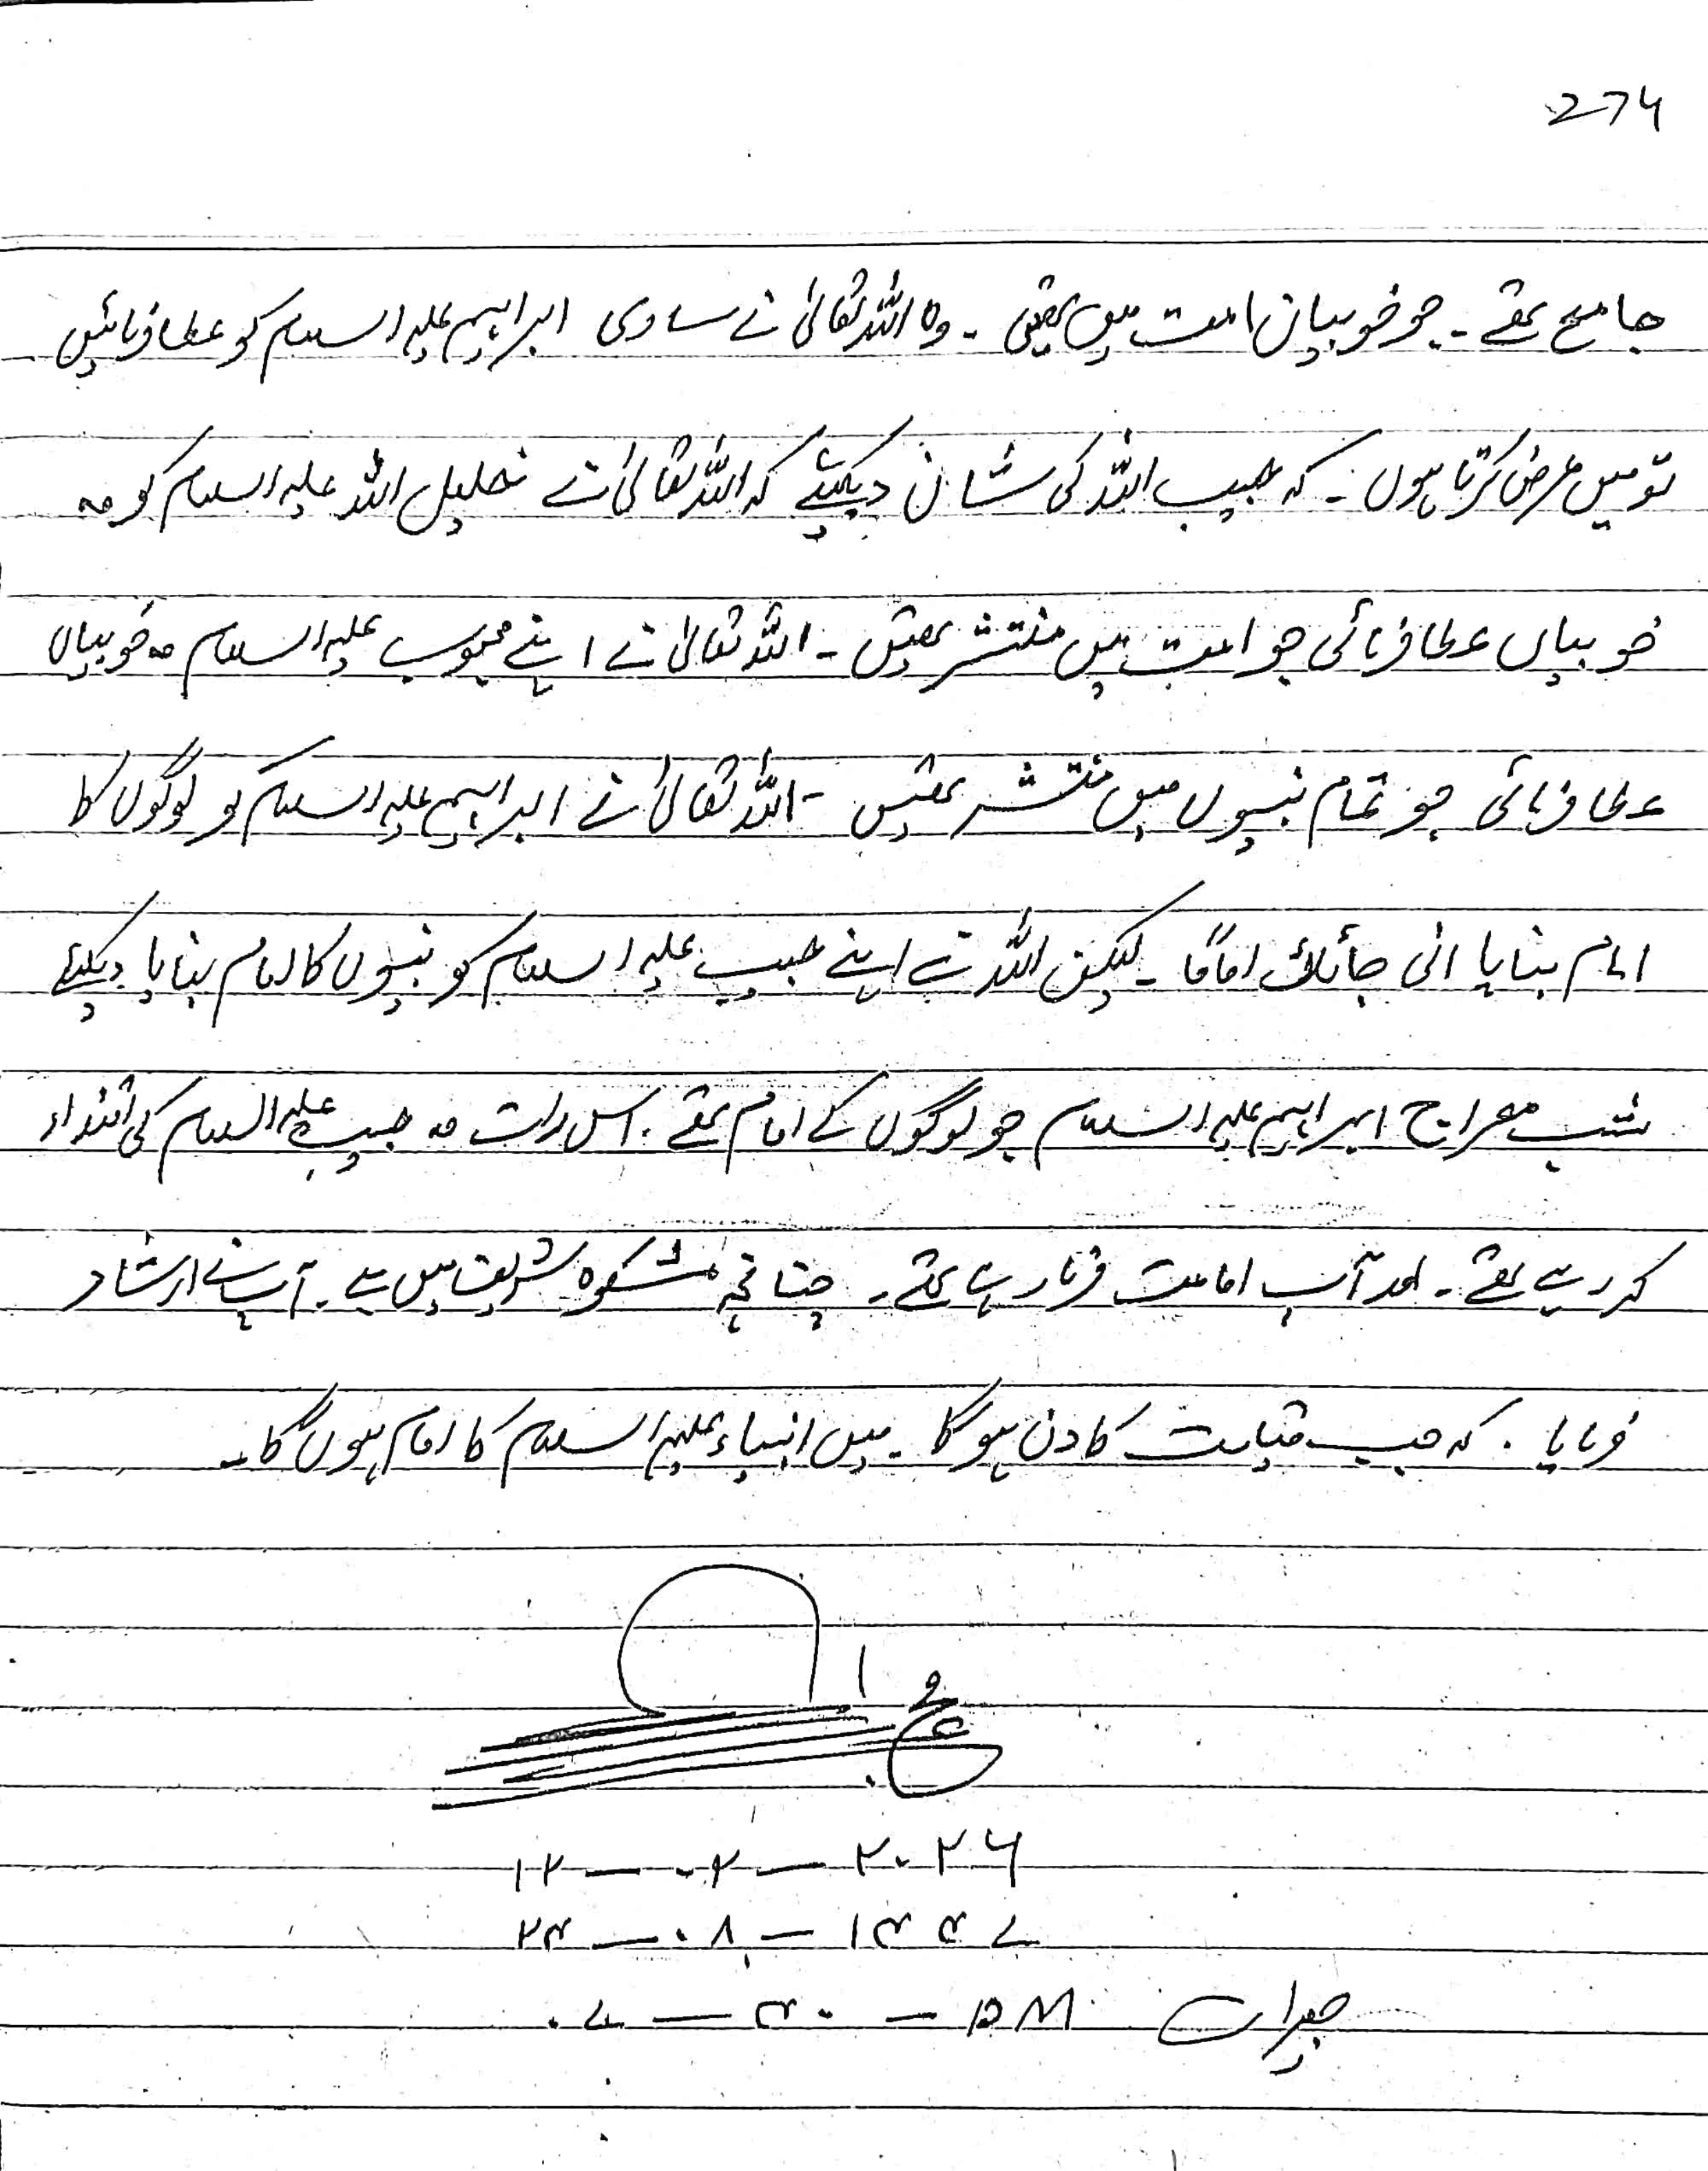 274
جامع تھے ۔ جو خوبیاں امت میں تھیں ۔ وہ اللہ تعالیٰ نے ساری ابراہیم علیہ السلام کو عطا فرمائیں
تو میں عرض کرتا ہوں ۔ کہ حبیب اللہ کی شان دیکھئے کہ اللہ تعالیٰ نے خلیل اللہ علیہ السلام کو وہ
خوبیاں عطا فرمائی جو امت میں منتشر تھیں ۔ اللہ تعالیٰ نے اپنے محبوب علیہ السلام وہ خوبیاں
عطا فرمائی جو تمام نبیوں میں منتشر تھیں ۔ اللہ تعالیٰ نے ابراہیم علیہ السلام کو لوگوں کا
امام بنایا انی جائلک اماماً ۔ لیکن اللہ نے اپنے حبیب علیہ السلام کو نبیوں کا امام بنایا دیکھئے
شب معراج ابراہیم علیہ السلام جو لوگوں کے امام تھے ۔ اس رات وہ حبیب علیہ السلام کی اقتداء
کر رہے تھے ۔ اور آپ امامت فرما رہے تھے ۔ چنانچہ مشکوہ شریف میں ہے ۔ آپ نے ارشاد
فرمایا ۔ کہ جب قیامت کا دن ہوگا ۔ میں انبیاء علیہم السلام کا امام ہوں گا ۔
۱۲ — ۰۲ — ۲۰۲۶
۲۴ — ۰۸ — ۱۴۴۷
جمعرات ۰۷ — ۴۰ — PM